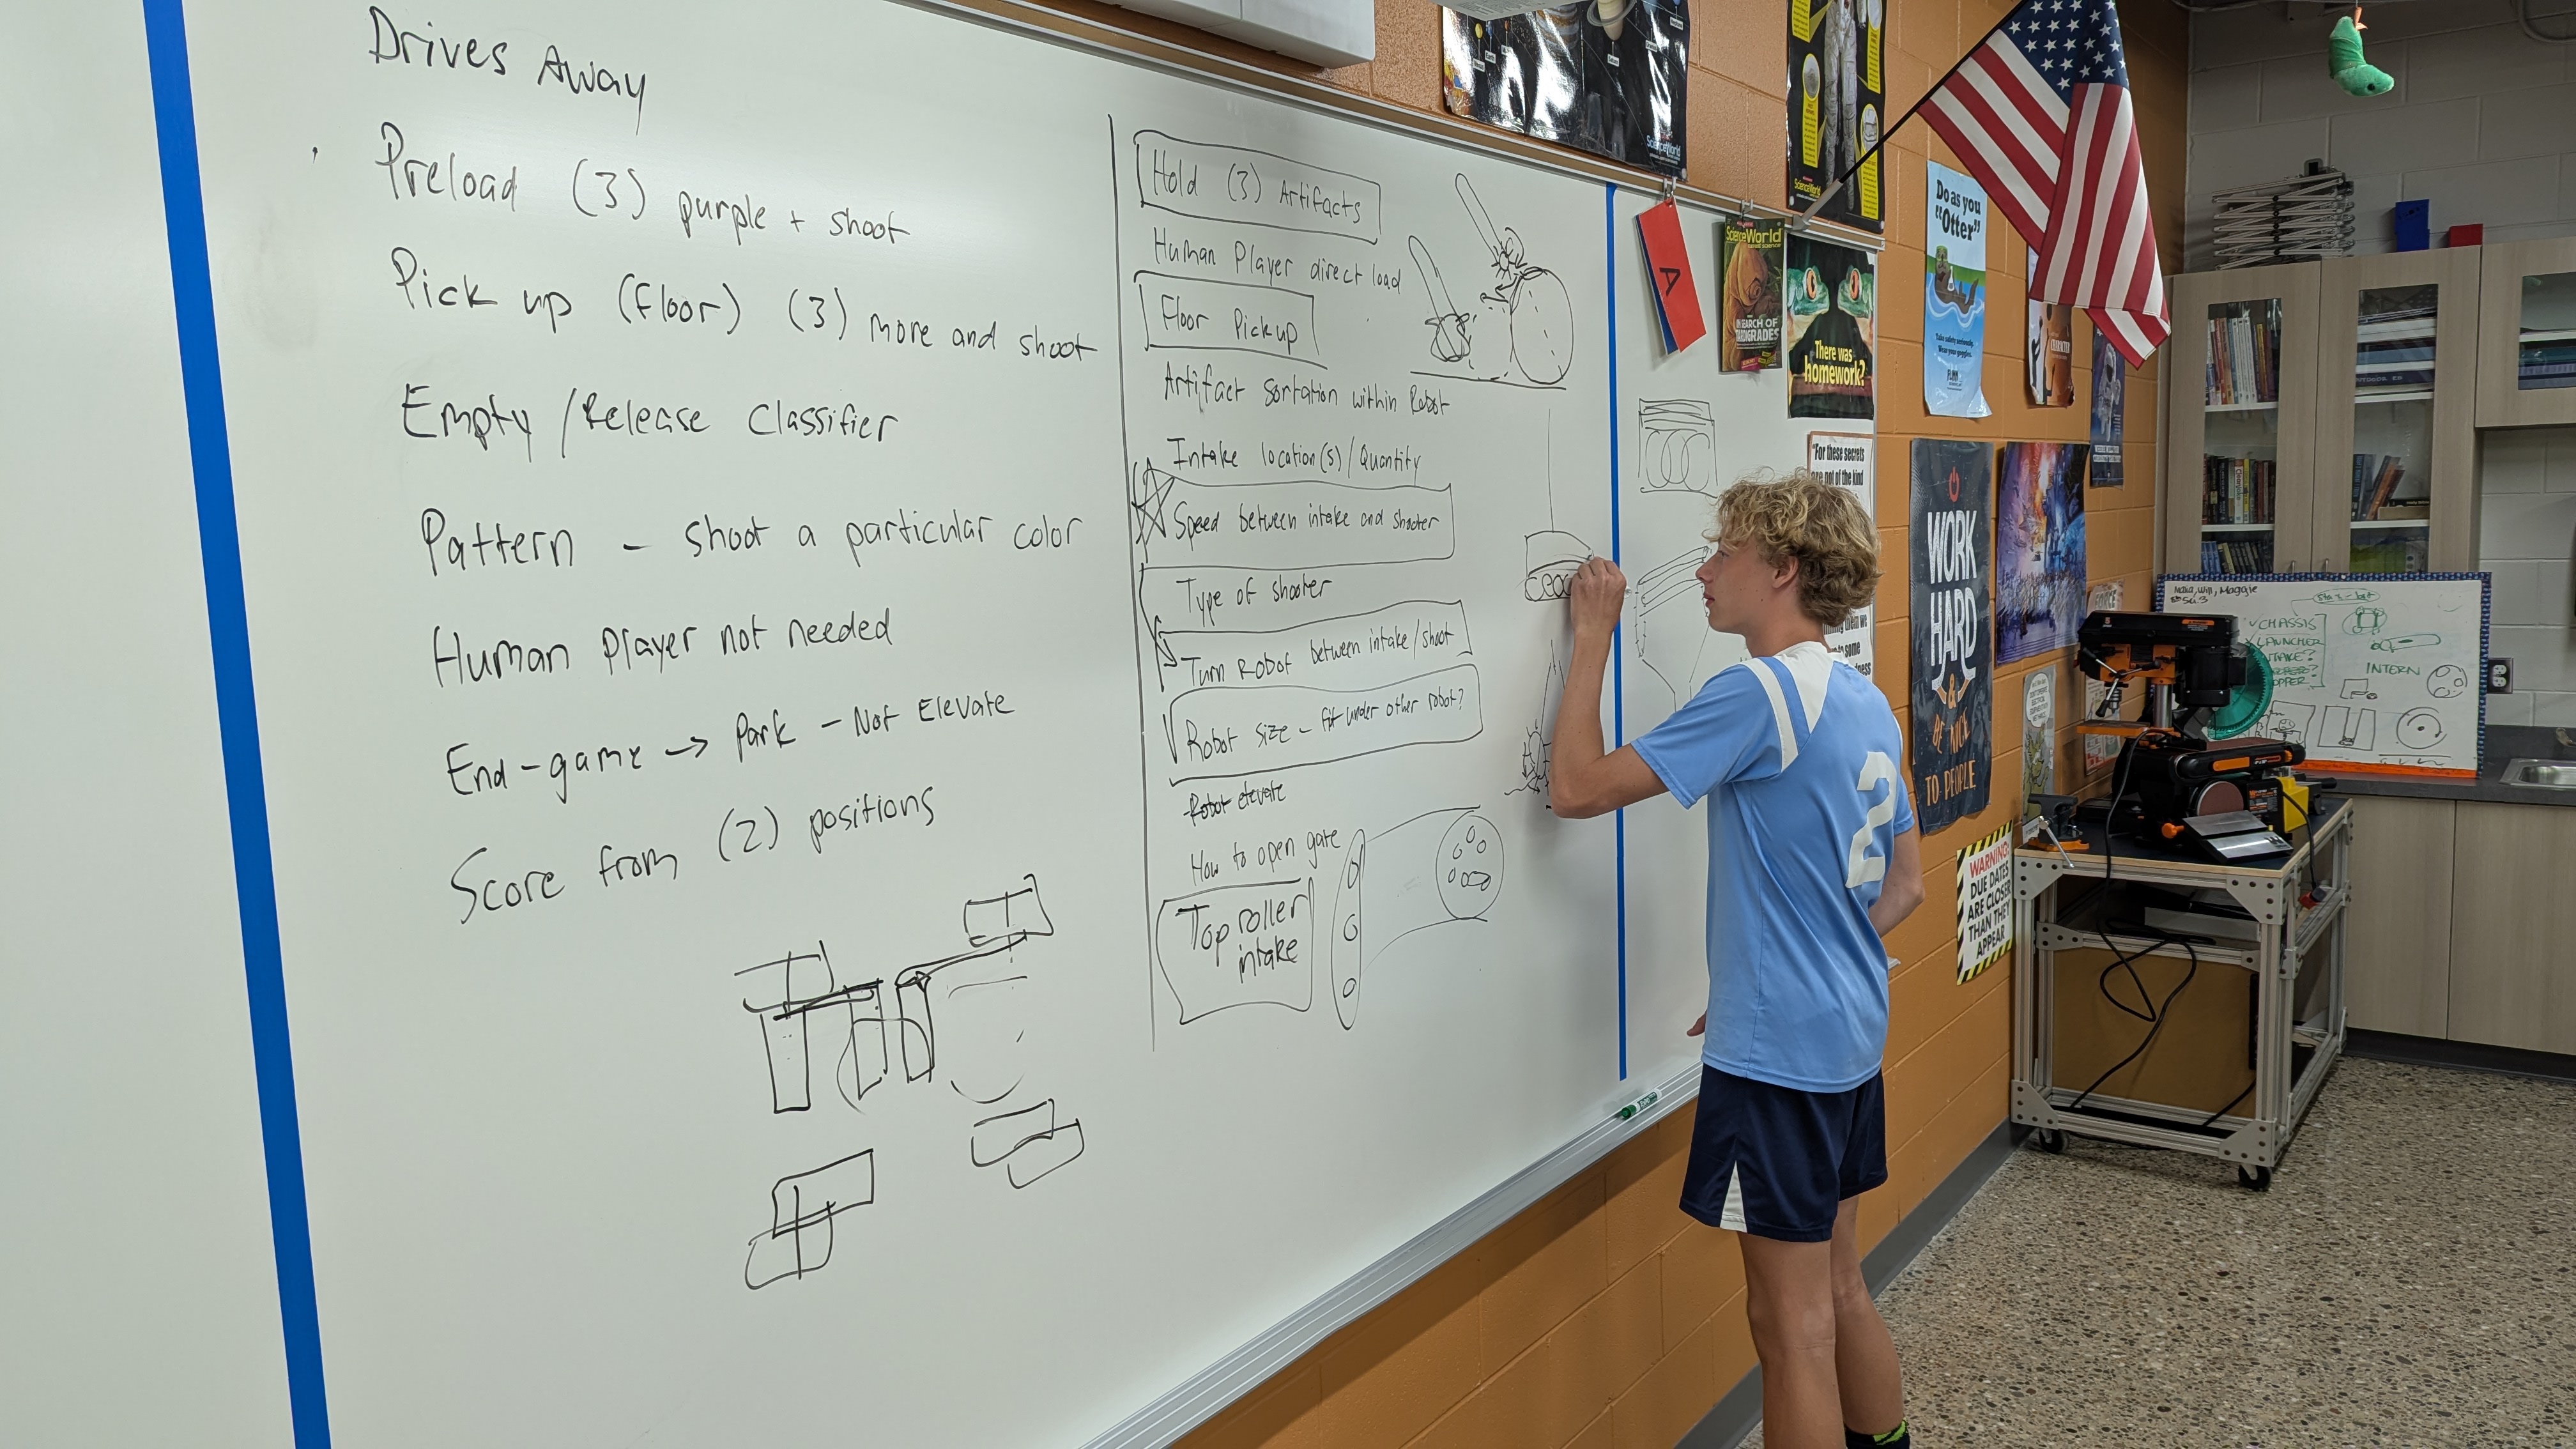 Drives Away
Preload (3) purple + shoot
Pick up (floor) (3) more and shoot
Empty / Release Classifier
Pattern - shoot a particular color
Human Player not needed
End-game → Park - Not Elevate
Score from (2) positions
Hold (3) Artifacts
Human Player direct load
Floor Pickup
Artifact sortation within Robot
Intake location(s) / Quantity
Speed between intake and shooter
Type of shooter
Turn Robot between intake / shoot
Robot size - fit under other robot?
Robot elevate
How to open gate
Top roller
intake
ScienceWorld
ScienceWorld
A
ScienceWorld
IN SEARCH OF
TARDIGRADES
There was
homework?
"For these secrets
are not of the kind
Do as you
"Otter"
Take safety seriously.
Wear your goggles.
FLINN
WORK
HARD
&
BE NICE
TO PEOPLE
WARNING:
DUE DATES
ARE CLOSER
THAN THEY
APPEAR
2
Will, Maggie
CHASSIS
LAUNCHER
INTAKE?
INTERN